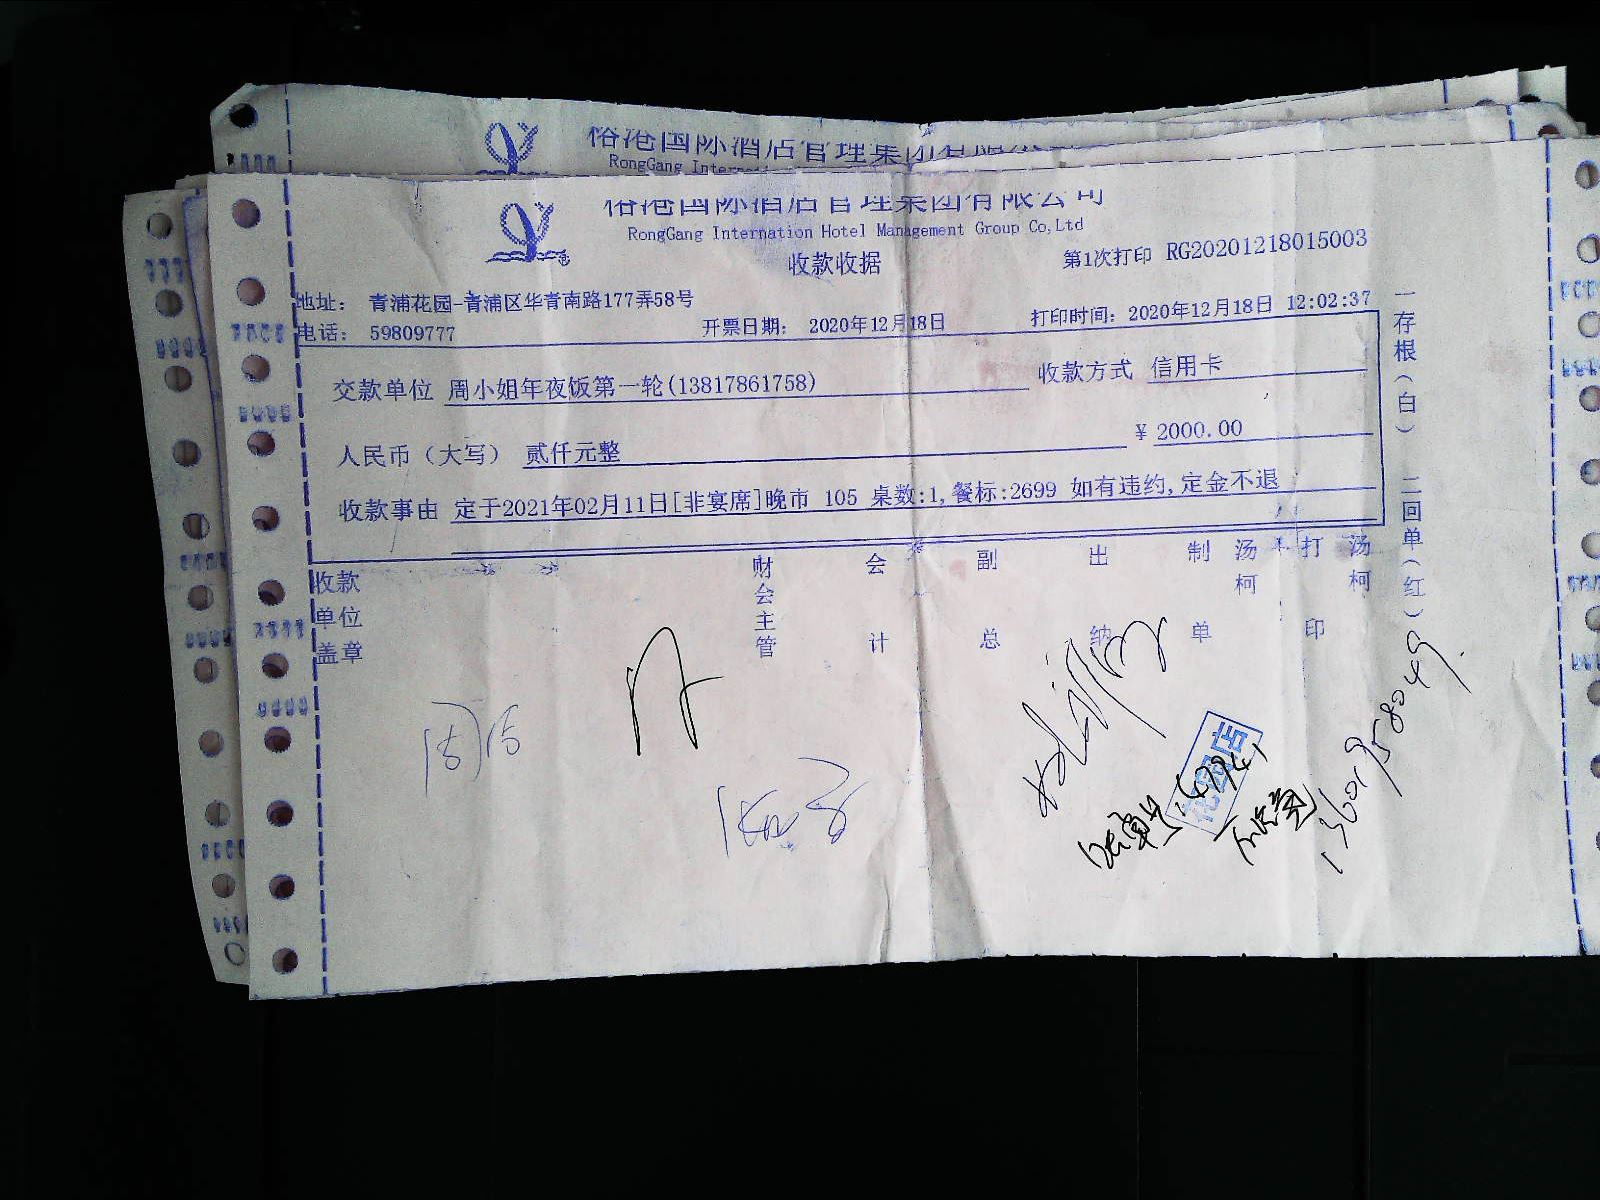 裕港国际酒店管理集团有限公司
RongGang Internation Hotel Management Group Co,Ltd
收款收据
第1次打印 RG20201218015003
地址： 青浦花园-青浦区华青南路177弄58号
电话： 59809777
开票日期： 2020年12月18日
打印时间：2020年12月18日 12:02:37
交款单位 周小姐年夜饭第一轮(13817861758)
收款方式 信用卡
人民币（大写） 贰仟元整
￥ 2000.00
收款事由 定于2021年02月11日[非宴席]晚市 105 桌数:1,餐标:2699 如有违约,定金不退
一存根（白） 二回单（红）
收款单位盖章
财会主管
会计
副总
出纳
制单
汤柯
打印
汤柯
花园店
13601958049